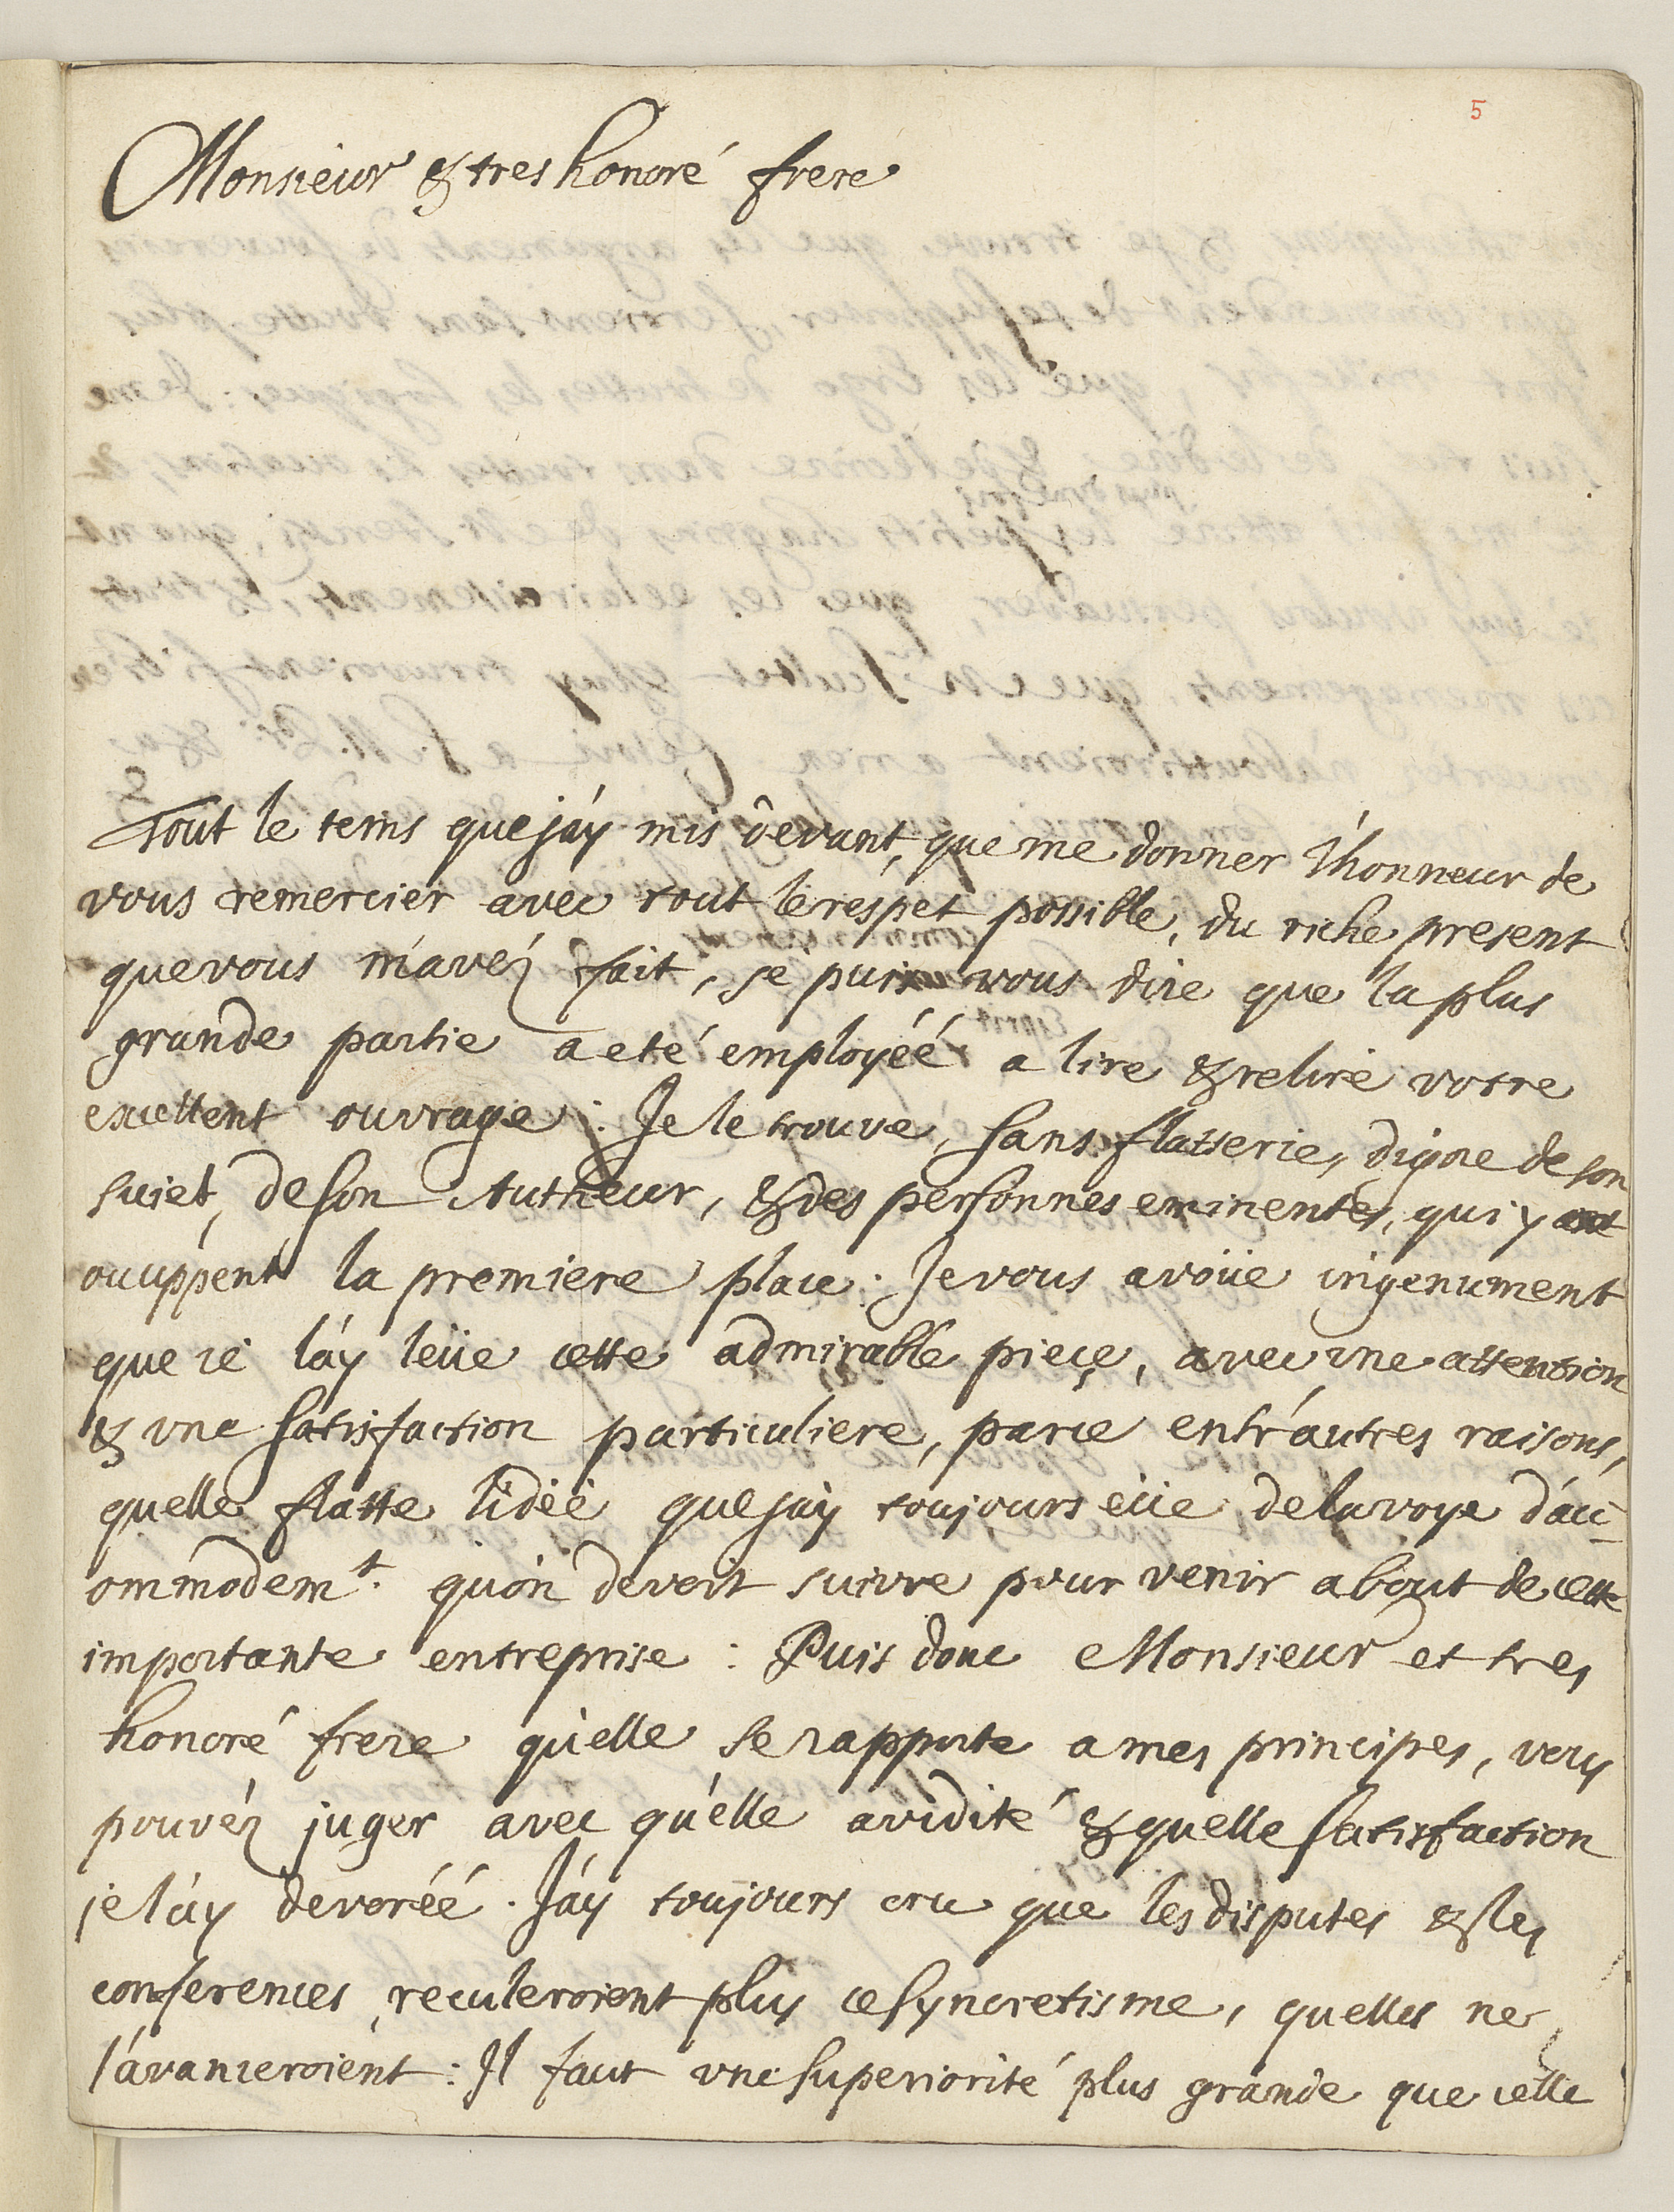 5
Monsieur & tres honoré frere
Tout le tems que j'ay mis devant, que me donner l'honneur de
vous remercier avec tout le réspet possible, du riche present
que vous m'avéz fait, je puis vous dire que la plus
grande partie a eté employéé a lire & relire votre
excellent ouvrage : Je le trouve, sans flatterie, digne de son
suiet, de son Autheur, & des personnes eminentes, qui y
ocuppent la premiere place : Je vous avoüe ingenument
que ie l'ay leüe cette admirable pieçe, avec vne attention
& vne satisfaction particuliere, parce entr'autres raisons,
quelle flatte lidéé que jay toujours eüe de la voye d'acc-
ommodemt. qu'on devoit suivre pour venir a bout de cette
importante entreprise : Puis donc Monsieur et tres
honoré frere qu'elle se rapporte a mes principes, vous
pouvéz juger avec qu'elle avidité & quelle satisfaction
je l'ay devoréé . J'ay toujours cru que les disputes & les
conferences, reculeroient plus ce syncretisme, quelles ne
l'avanceroient : Il faut vne superiorité plus grande que celle